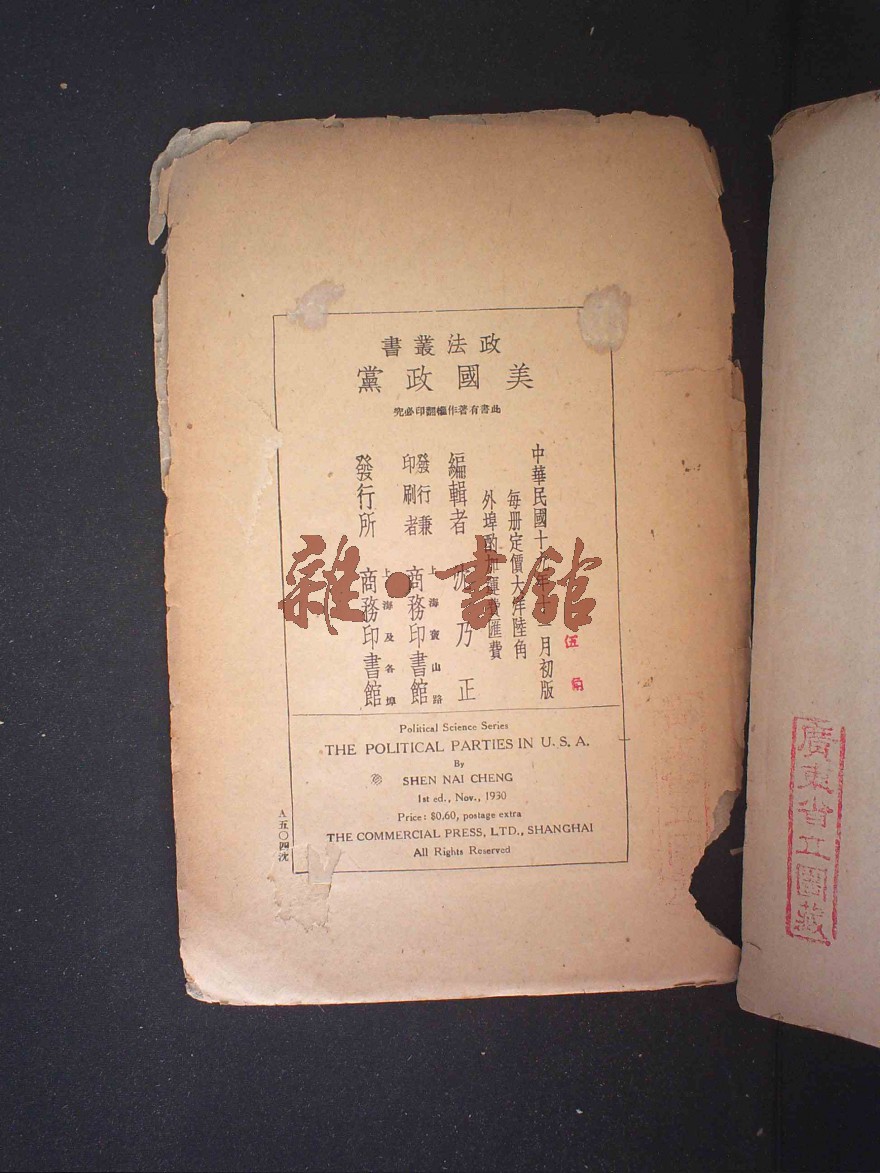 政法叢書
美國政黨
此書有著作權翻印必究
中華民國十九年十一月初版
每册定價大洋陸角
外埠酌加運費匯費
伍角
編輯者 沈乃正
發行兼印刷者 上海寶山路 商務印書館
發行所 上海及各埠 商務印書館
Political Science Series
THE POLITICAL PARTIES IN U. S. A.
By
SHEN NAI CHENG
1st ed., Nov., 1930
Price: $0.60, postage extra
THE COMMERCIAL PRESS, LTD., SHANGHAI
All Rights Reserved
A五〇四沈
雜·書館